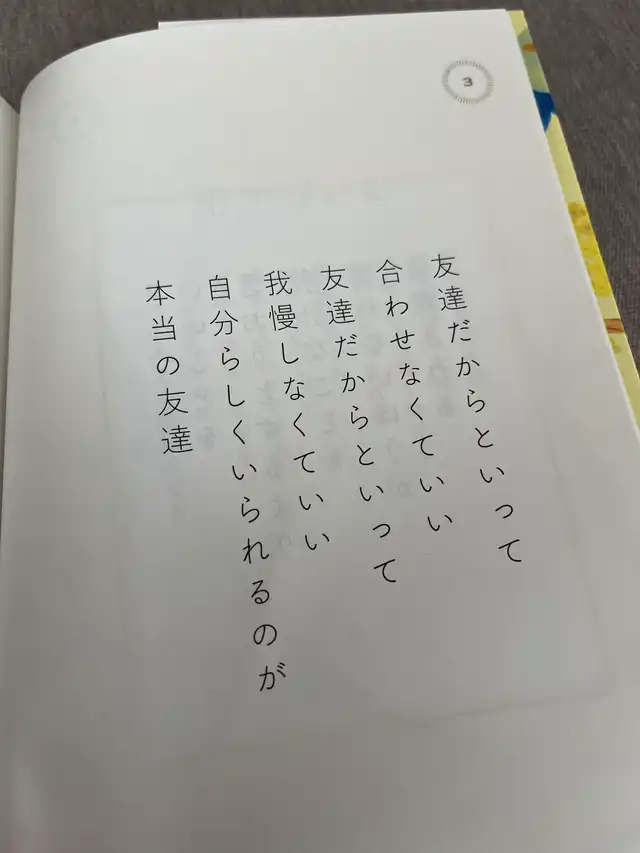 3
友達だからといって
合わせなくていい
友達だからといって
我慢しなくていい
自分らしくいられるのが
本当の友達